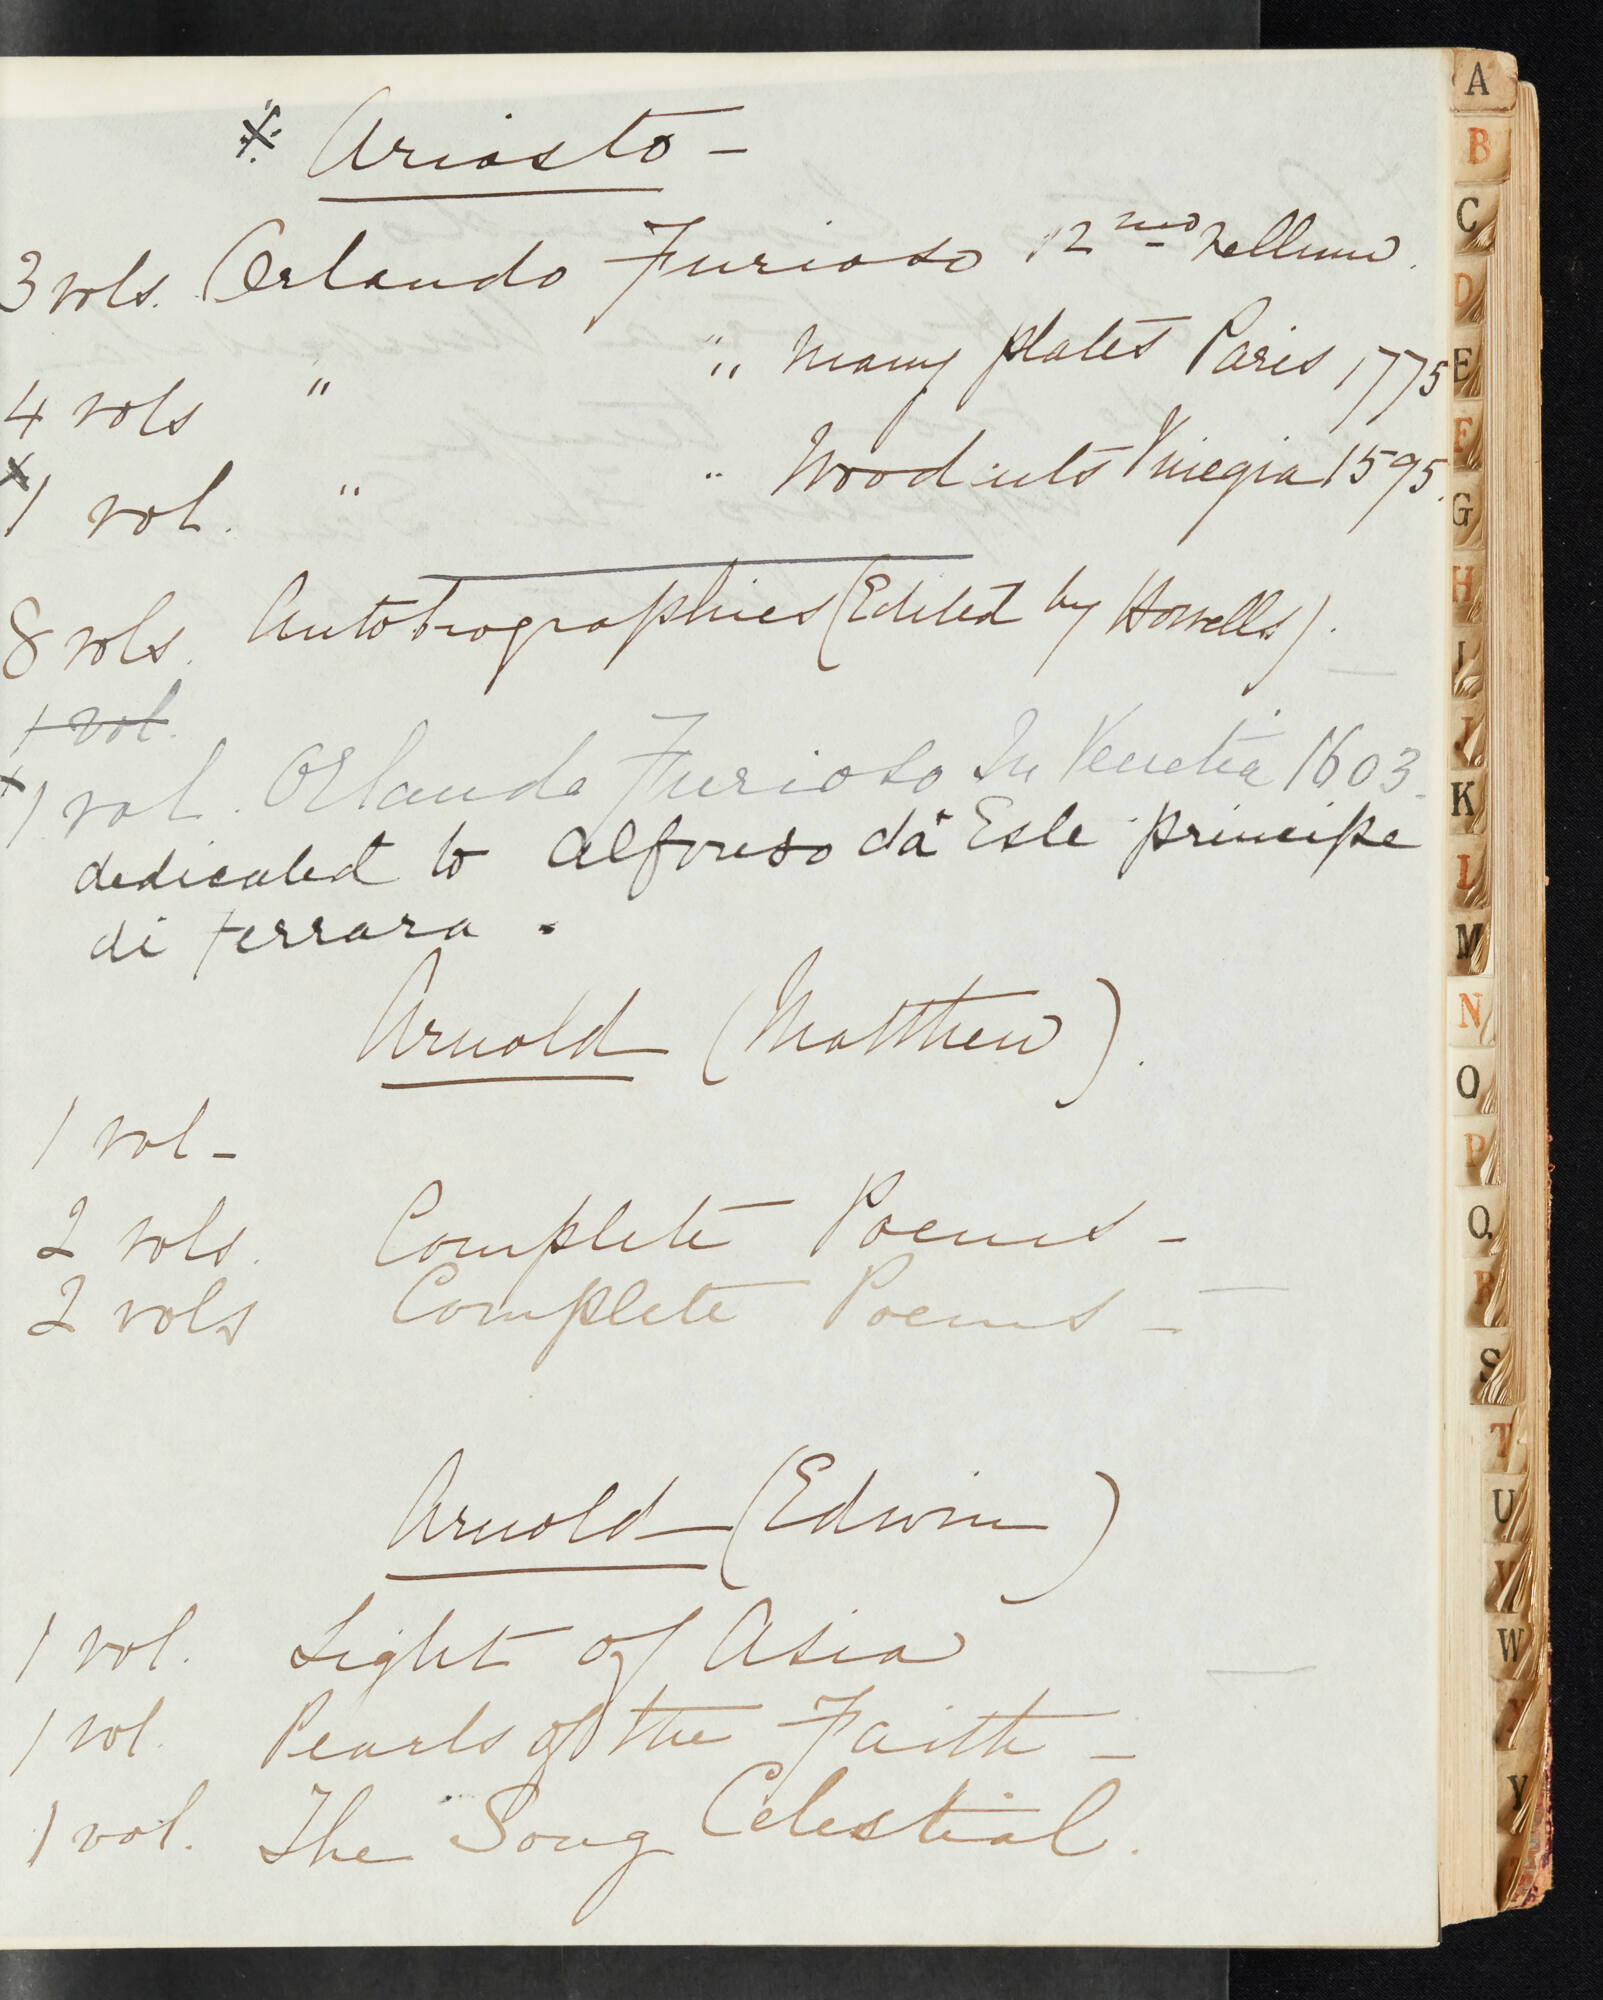 Ariosto -
3 vols. Orlando Furioso 12mo Vellum.
4 vols " " Many plates Paris 1775
x 1 vol. " " Woodcuts Vinegia 1595.
8 vols. Autobiographies (Edited by Howells).
1 vol.
x 1 vol. Orlando Furioso In Venetia 1603.
dedicated to Alfonso da Este principe
di ferrara.
Arnold (Matthew).
1 vol -
2 vols. Complete Poems -
2 vols Complete Poems -
Arnold (Edwin)
1 vol. Light of Asia
1 vol. Pearls of the Faith -
1 vol. The Song Celestial.
A
B
C
D
E
F
G
H
I
J
K
L
M
N
O
P
Q
R
S
T
U
V
W
Y